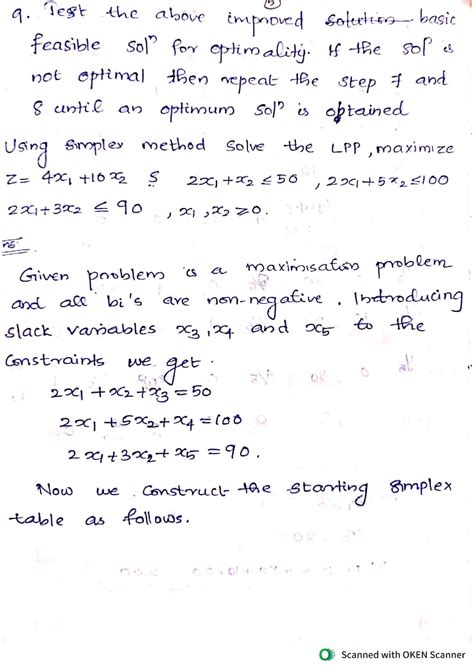 9. Test the above improved solution basic
feasible solⁿ for optimality. If the solⁿ is
not optimal then repeat the step 7 and
8 until an optimum solⁿ is obtained
Using simplex method solve the LPP, maximize
Z = 4x₁ + 10x₂ S 2x₁ + x₂ ≤ 50, 2x₁ + 5x₂ ≤ 100
2x₁ + 3x₂ ≤ 90, x₁, x₂ ≥ 0.
ns:
Given problem is a maximisation problem
and all bi's are non-negative. Introducing
slack variables x₃, x₄ and x₅ to the
constraints we get.
2x₁ + x₂ + x₃ = 50
2x₁ + 5x₂ + x₄ = 100
2x₁ + 3x₂ + x₅ = 90.
Now we construct the starting simplex
table as follows.
Scanned with OKEN Scanner